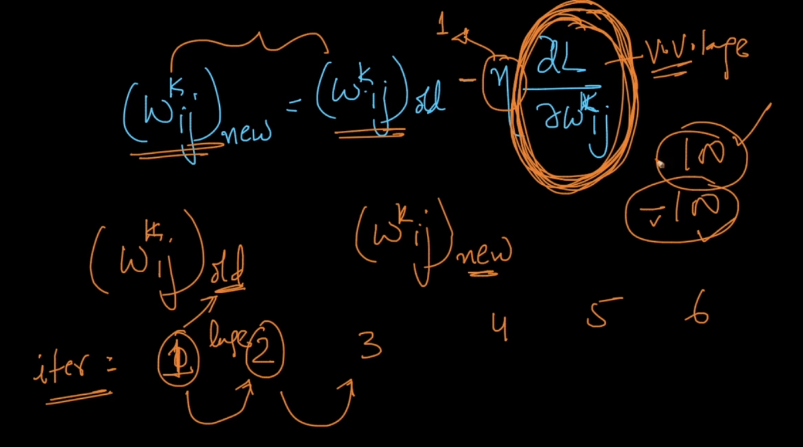 1
(W^k_ij)_new = (W^k_ij)_old - η ∂L/∂W^k_ij
v.v.large
100
-100
(W^k_ij)_old (W^k_ij)_new
large
iter = 1 2 3 4 5 6